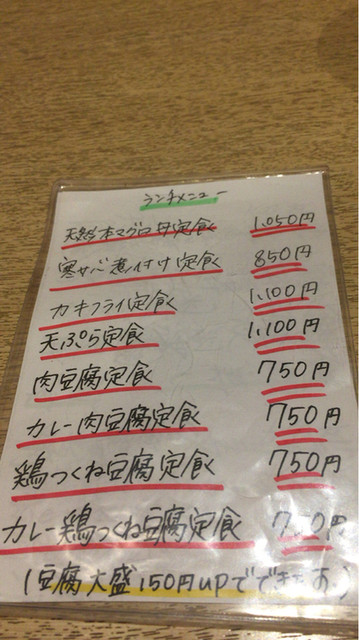 ランチメニュー
天然本マグロ丼定食 1,050円
寒サバ煮付け定食 850円
カキフライ定食 1,100円
天ぷら定食 1,100円
肉豆腐定食 750円
カレー肉豆腐定食 750円
鶏つくね豆腐定食 750円
カレー鶏つくね豆腐定食
(豆腐大盛150円upでできます)